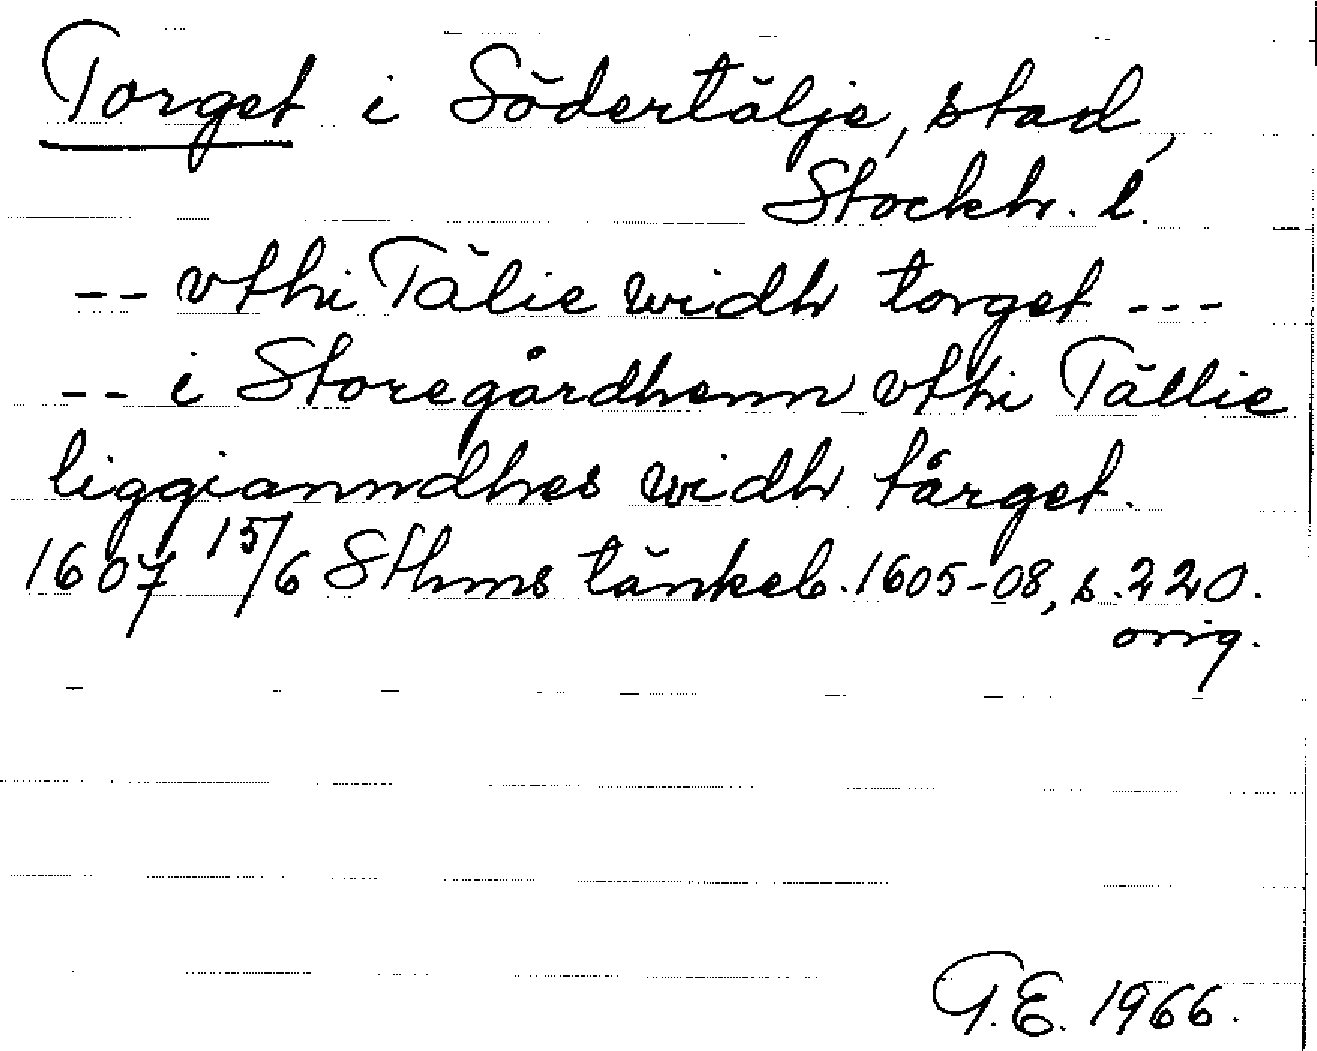 Torget i Södertälje, stad,
Stockh. l.
-- vthi Tälie widh torget ---
-- i Storegårdhenn vthi Tällie
liggianndhes widh tårget.
1607 15/6 Sthms tänkeb. 1605-08, s. 220.
orig.
G.E. 1966.